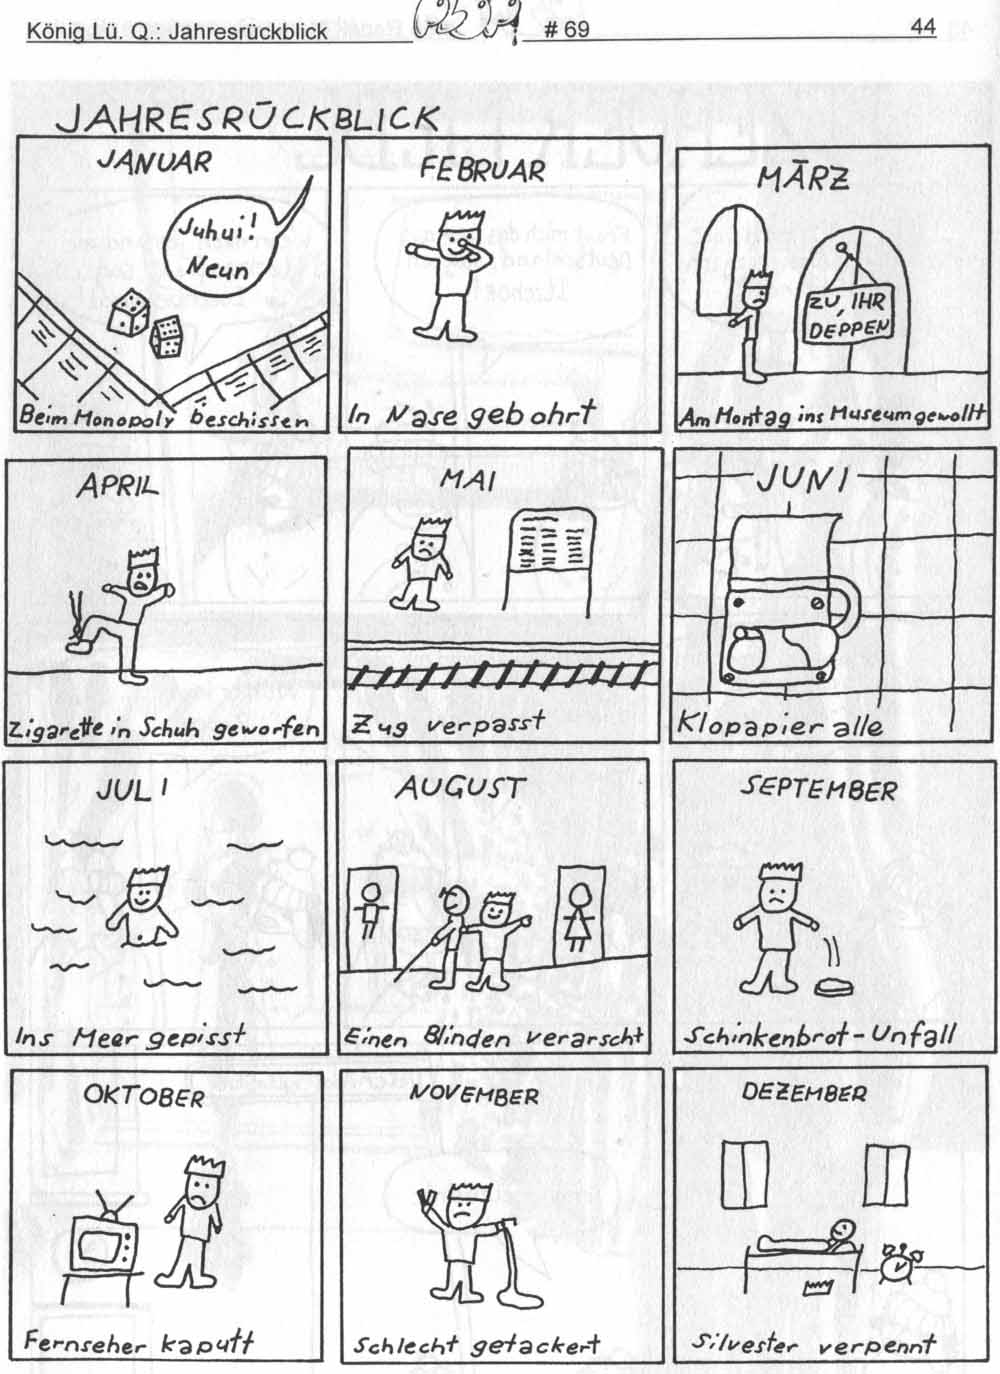 König Lü. Q.: Jahresrückblick
# 69
44
JAHRESRÜCKBLICK
JANUAR
Juhui!
Neun
Beim Monopoly beschissen
FEBRUAR
In Nase gebohrt
MÄRZ
ZU, IHR
DEPPEN
Am Montag ins Museum gewollt
APRIL
Zigarette in Schuh geworfen
MAI
Zug verpasst
JUNI
Klopapier alle
JULI
Ins Meer gepisst
AUGUST
Einen Blinden verarscht
SEPTEMBER
Schinkenbrot-Unfall
OKTOBER
Fernseher kaputt
NOVEMBER
Schlecht getackert
DEZEMBER
Silvester verpennt